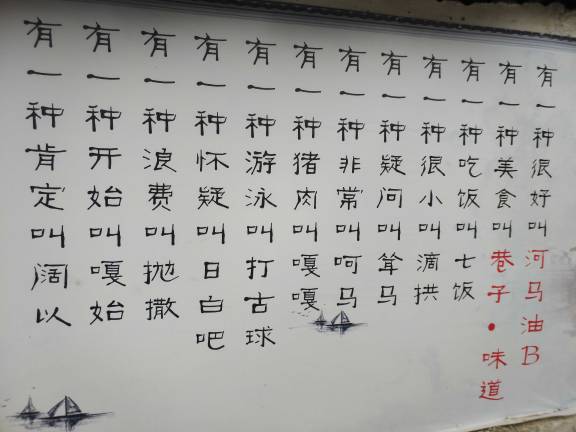 有一种很好叫河马油B
有一种美食叫巷子•味道
有一种吃饭叫七饭
有一种很小叫滴拱
有一种疑问叫耸马
有一种非常叫呵马
有一种猪肉叫嘎嘎
有一种游泳叫打古球
有一种怀疑叫日白吧
有一种浪费叫抛撒
有一种开始叫嘎始
有一种肯定叫阔以